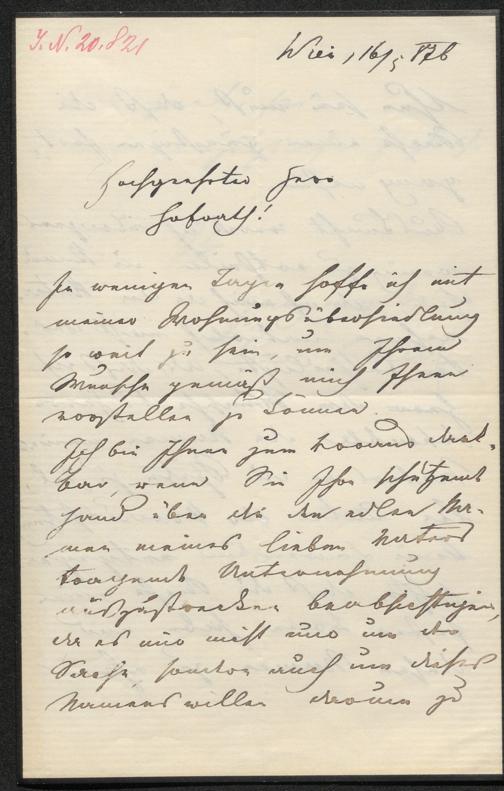 J.N. 20.821
Wien, 16/5 876
Hochgeehrter Herr
Hofrath!
In wenigen Tagen hoffe ich mit
meiner Wohnungsübersiedlung
so weit zu sein, um Ihrem
Wunsche gemäß mich Ihnen
vorstellen zu können.
Ich bin Ihnen zum voraus dank-
bar, wenn Sie Ihre schützende
Hand über die den edlen Na-
men meines lieben Vaters
tragende Unternehmung
auszustrecken beabsichtigen,
da es mir nicht nur um die
Sache, sondern auch um dieses
Namens willen darum zu